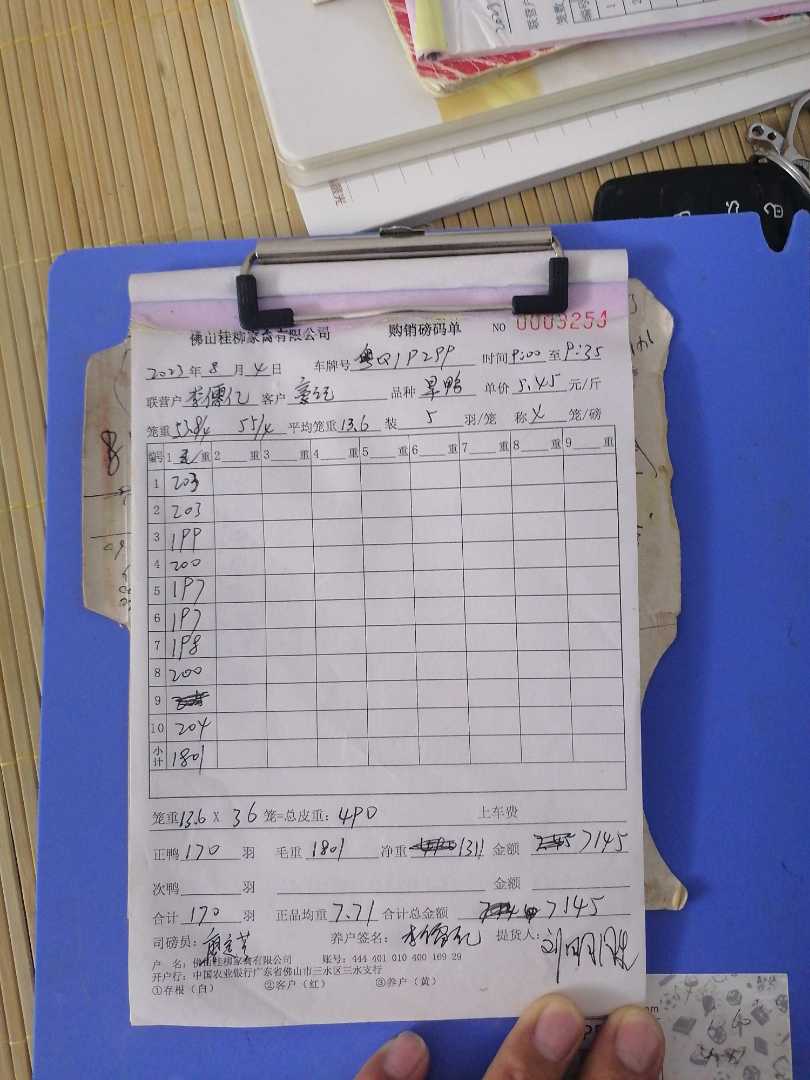 佛山桂柳家禽有限公司 购销磅码单 NO 0003254
2023年8月4日 车牌号 粤Q1P299 时间9:00至9:35
联营户 李儒亿 客户 品种 旱鸭 单价 5.45 元/斤
笼重 55/4 平均笼重13.6 装 5 羽/笼 称 4 笼/磅
编号 1 重 2 重 3 重 4 重 5 重 6 重 7 重 8 重 9 重
1 203
2 203
3 199
4 200
5 197
6 197
7 198
8 200
9
10 204
小计 1801
笼重13.6 X 36 笼=总皮重: 490 上车费
正鸭 170 羽 毛重 1801 净重 1311 金额 7145
次鸭 羽 金额
合计 170 羽 正品均重 7.71 合计总金额 7145
司磅员: 养户签名: 李儒亿 提货人:
户 名: 佛山桂柳家禽有限公司 账号: 444 401 010 400 169 29
开户行: 中国农业银行广东省佛山市三水区三水支行
①存根（白） ②客户（红） ③养户（黄）